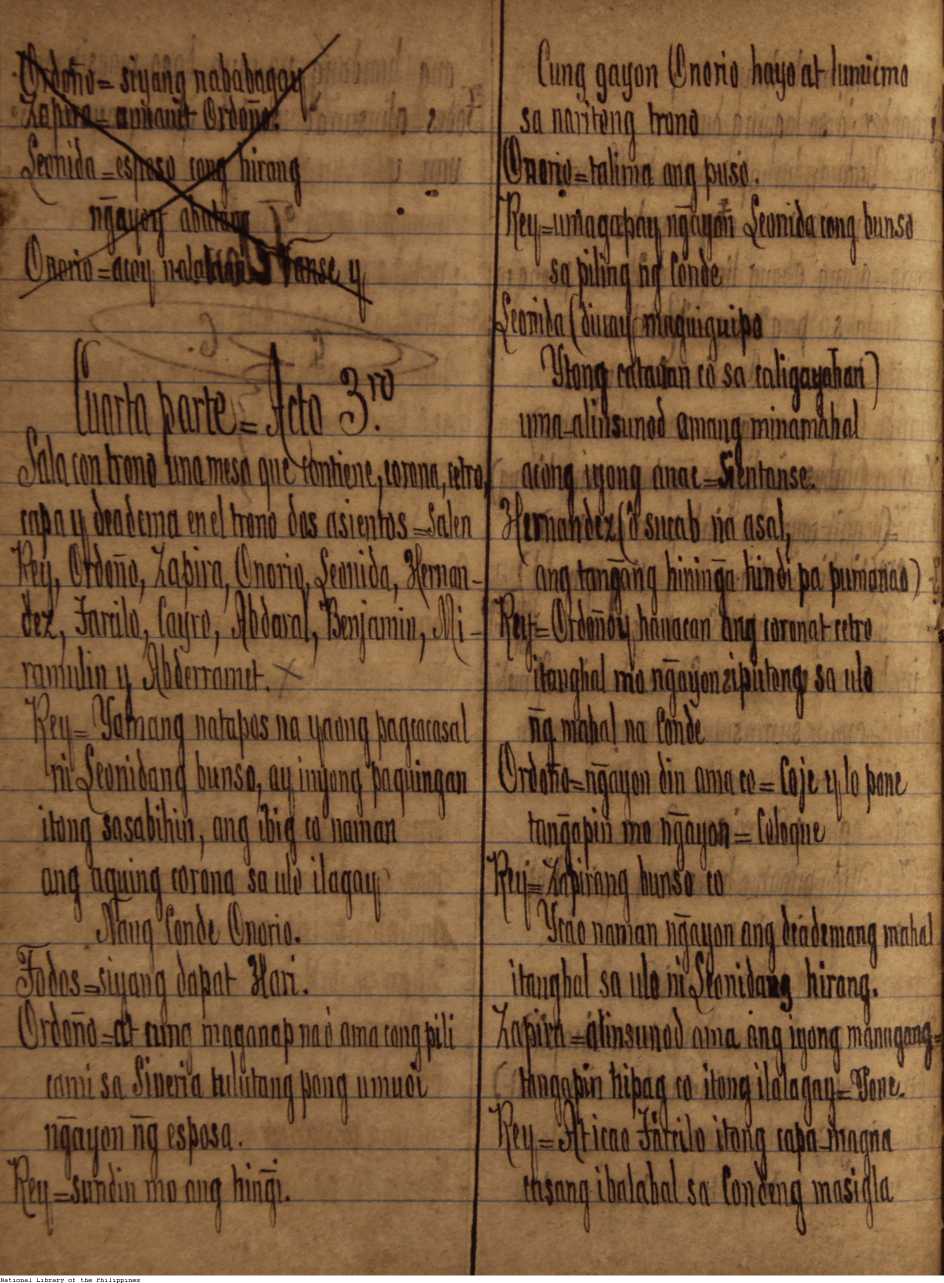 Ordoño= siyang nababagay
Zapira= aumanit Ordoño.
Leonida=esposo cong hirang
ng̃ayon abuting
Onorio=acoy Sianse y
Cuarta parte= Acto 3.ro
Sala con trono una mesa que contiene, corona, cetro,
capa y deadema en el trono dos asientos=Salen
Rey, Ordoño, Zapira, Onorio, Leonida, Hernan-
dez, Farilo, Cayro, Abdaral, Benjamin, Mi-
ramulin y Abderramet.
Rey= Yamang natapos na yaong pagcacasal
ni Leonidang bunso, ay inyong paquingan
itong sasabihin, ang ibig co naman
ang aquing corona sa ulo ilagay
Nang Conde Onorio.
Todos=siyang dapat Hari.
Ordoño=at cung maganap na ó ama cong pili
cami sa Siveria tulutang pong umuoi
ng̃ayon ng̃ esposa.
Rey=sundin mo ang hing̃i.
Cung gayon Onorio hayo at lumucmo
sa naritong trono
Onorio=talima ang puso.
Rey=umagapay ng̃ayon Leonida cong bunso
sa piling ng̃ Conde
Leonida (diuay maguiguipo
Ytong catauan co sa caligayahan)
uma-alinsunod amang minamahal
acong iyong anac=Sientanse.
Hernandez(ó sucab na asal,
ang tang̃ang hining̃a hindi pa pumanao)
Rey= Ordoñoy hauacan ang coronat cetro
itanghal mo ng̃ayon ziputong sa ulo
ng̃ mahal na Conde
Ordoño=ng̃ayon din ama co= Coje y lo pone
tang̃apin mo ng̃ayon= Coloque
Rey= Zapirang bunso co
Ycao naman ng̃ayon ang deademang mahal
itanghal sa ulo ni Leonidang hirang.
Zapira=alinsunod ama ang iyong manugang=
tangapin hipag co itong ilalagay=Pone.
Rey= At icao Fatrilo itong capa-magna
ibalabal sa Condeng masigla
National Library of the Philippines